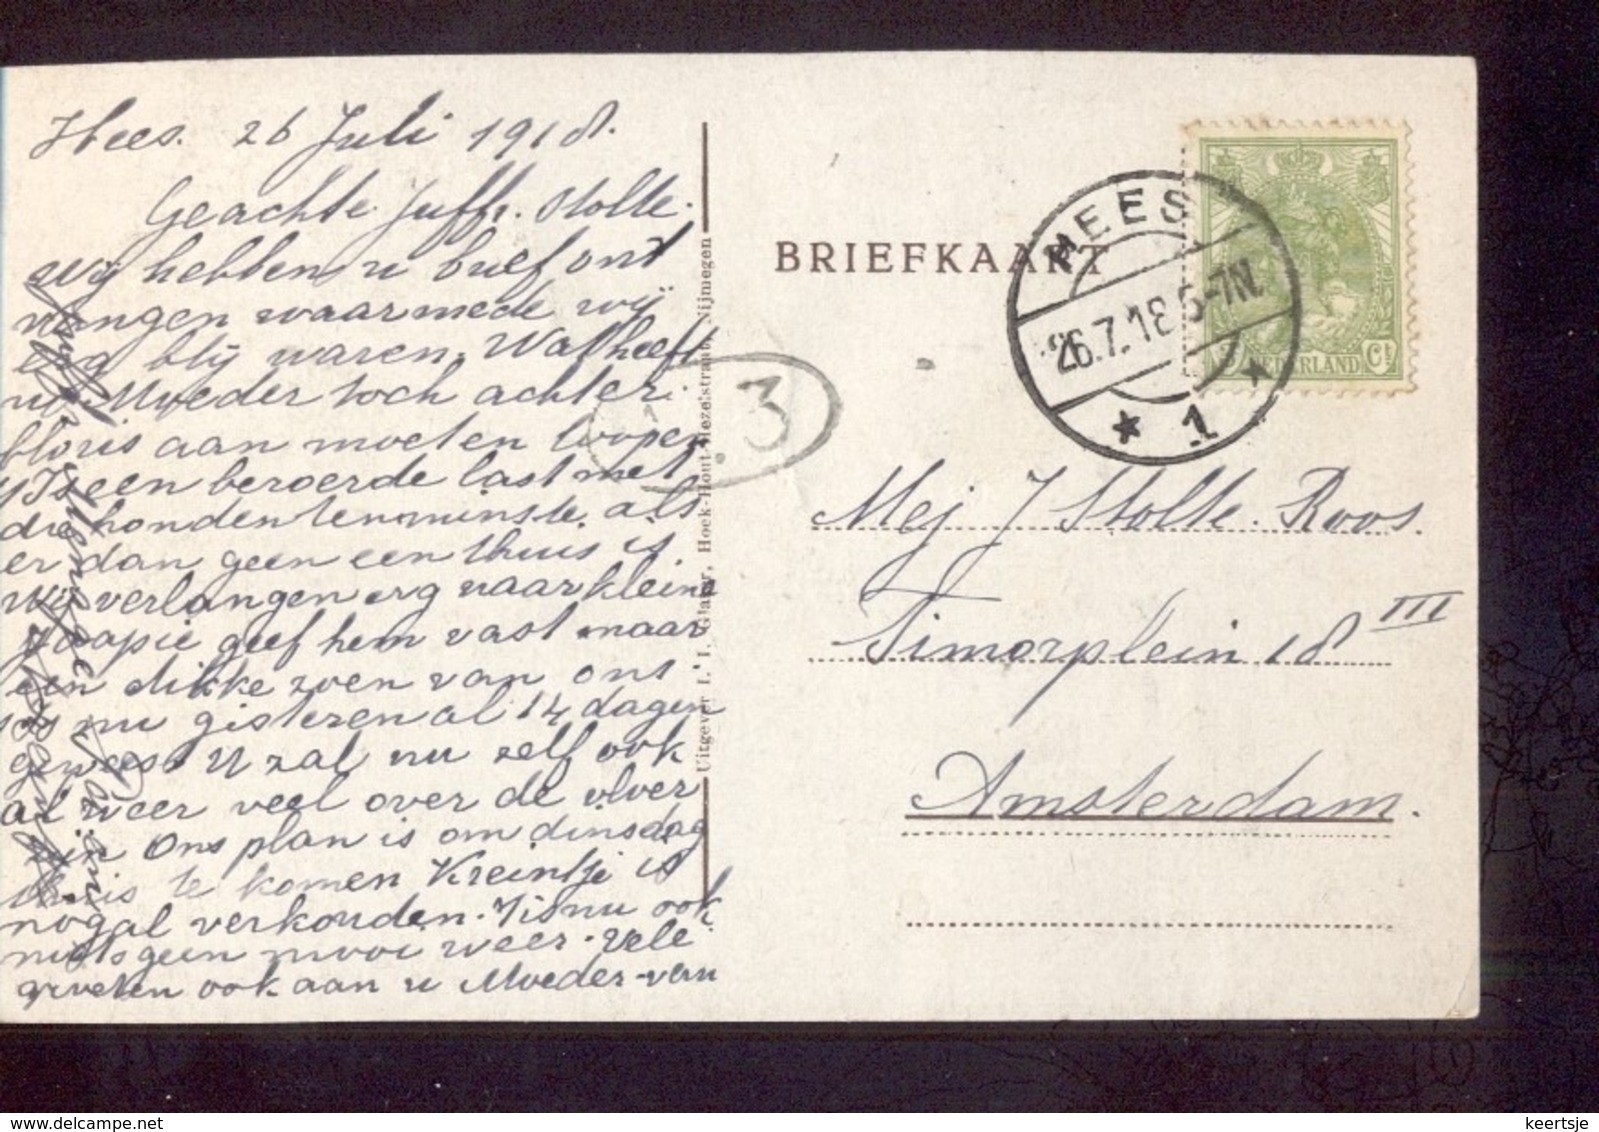 Hees. 26 Juli 1918.
Geachte Juffr. Stolte.
Wij hebben u brief ont
vangen waarmede wij
erg blij waren. Wat heeft
uw Moeder toch achter
bloris aan moeten loopen
't Is een beroerde last met
die honden tenminste als
er dan geen een thuis is
Wij verlangen erg naar kleine
Jaapie geef hem vast maar
een dikke zoen van ons
is nu gisteren al 14 dagen
geweest U zal nu zelf ook
al weer veel over de vloer
zijn Ons plan is om dinsdag
thuis te komen Kreintje is
nogal verkouden. 't is nu ook
niets geen mooi weer. Vele
groeten ook aan u Moeder van
Uitgever I. I. Glaser, Hoek Hout-Hezelstraat, Nijmegen
3
BRIEFKAART
HEES
26.7.18 5-7N.
1
NEDERLAND
Ct
Mej J Stolte. Roos.
Timorplein 18 III
Amsterdam.
delcampe.net
keertsje